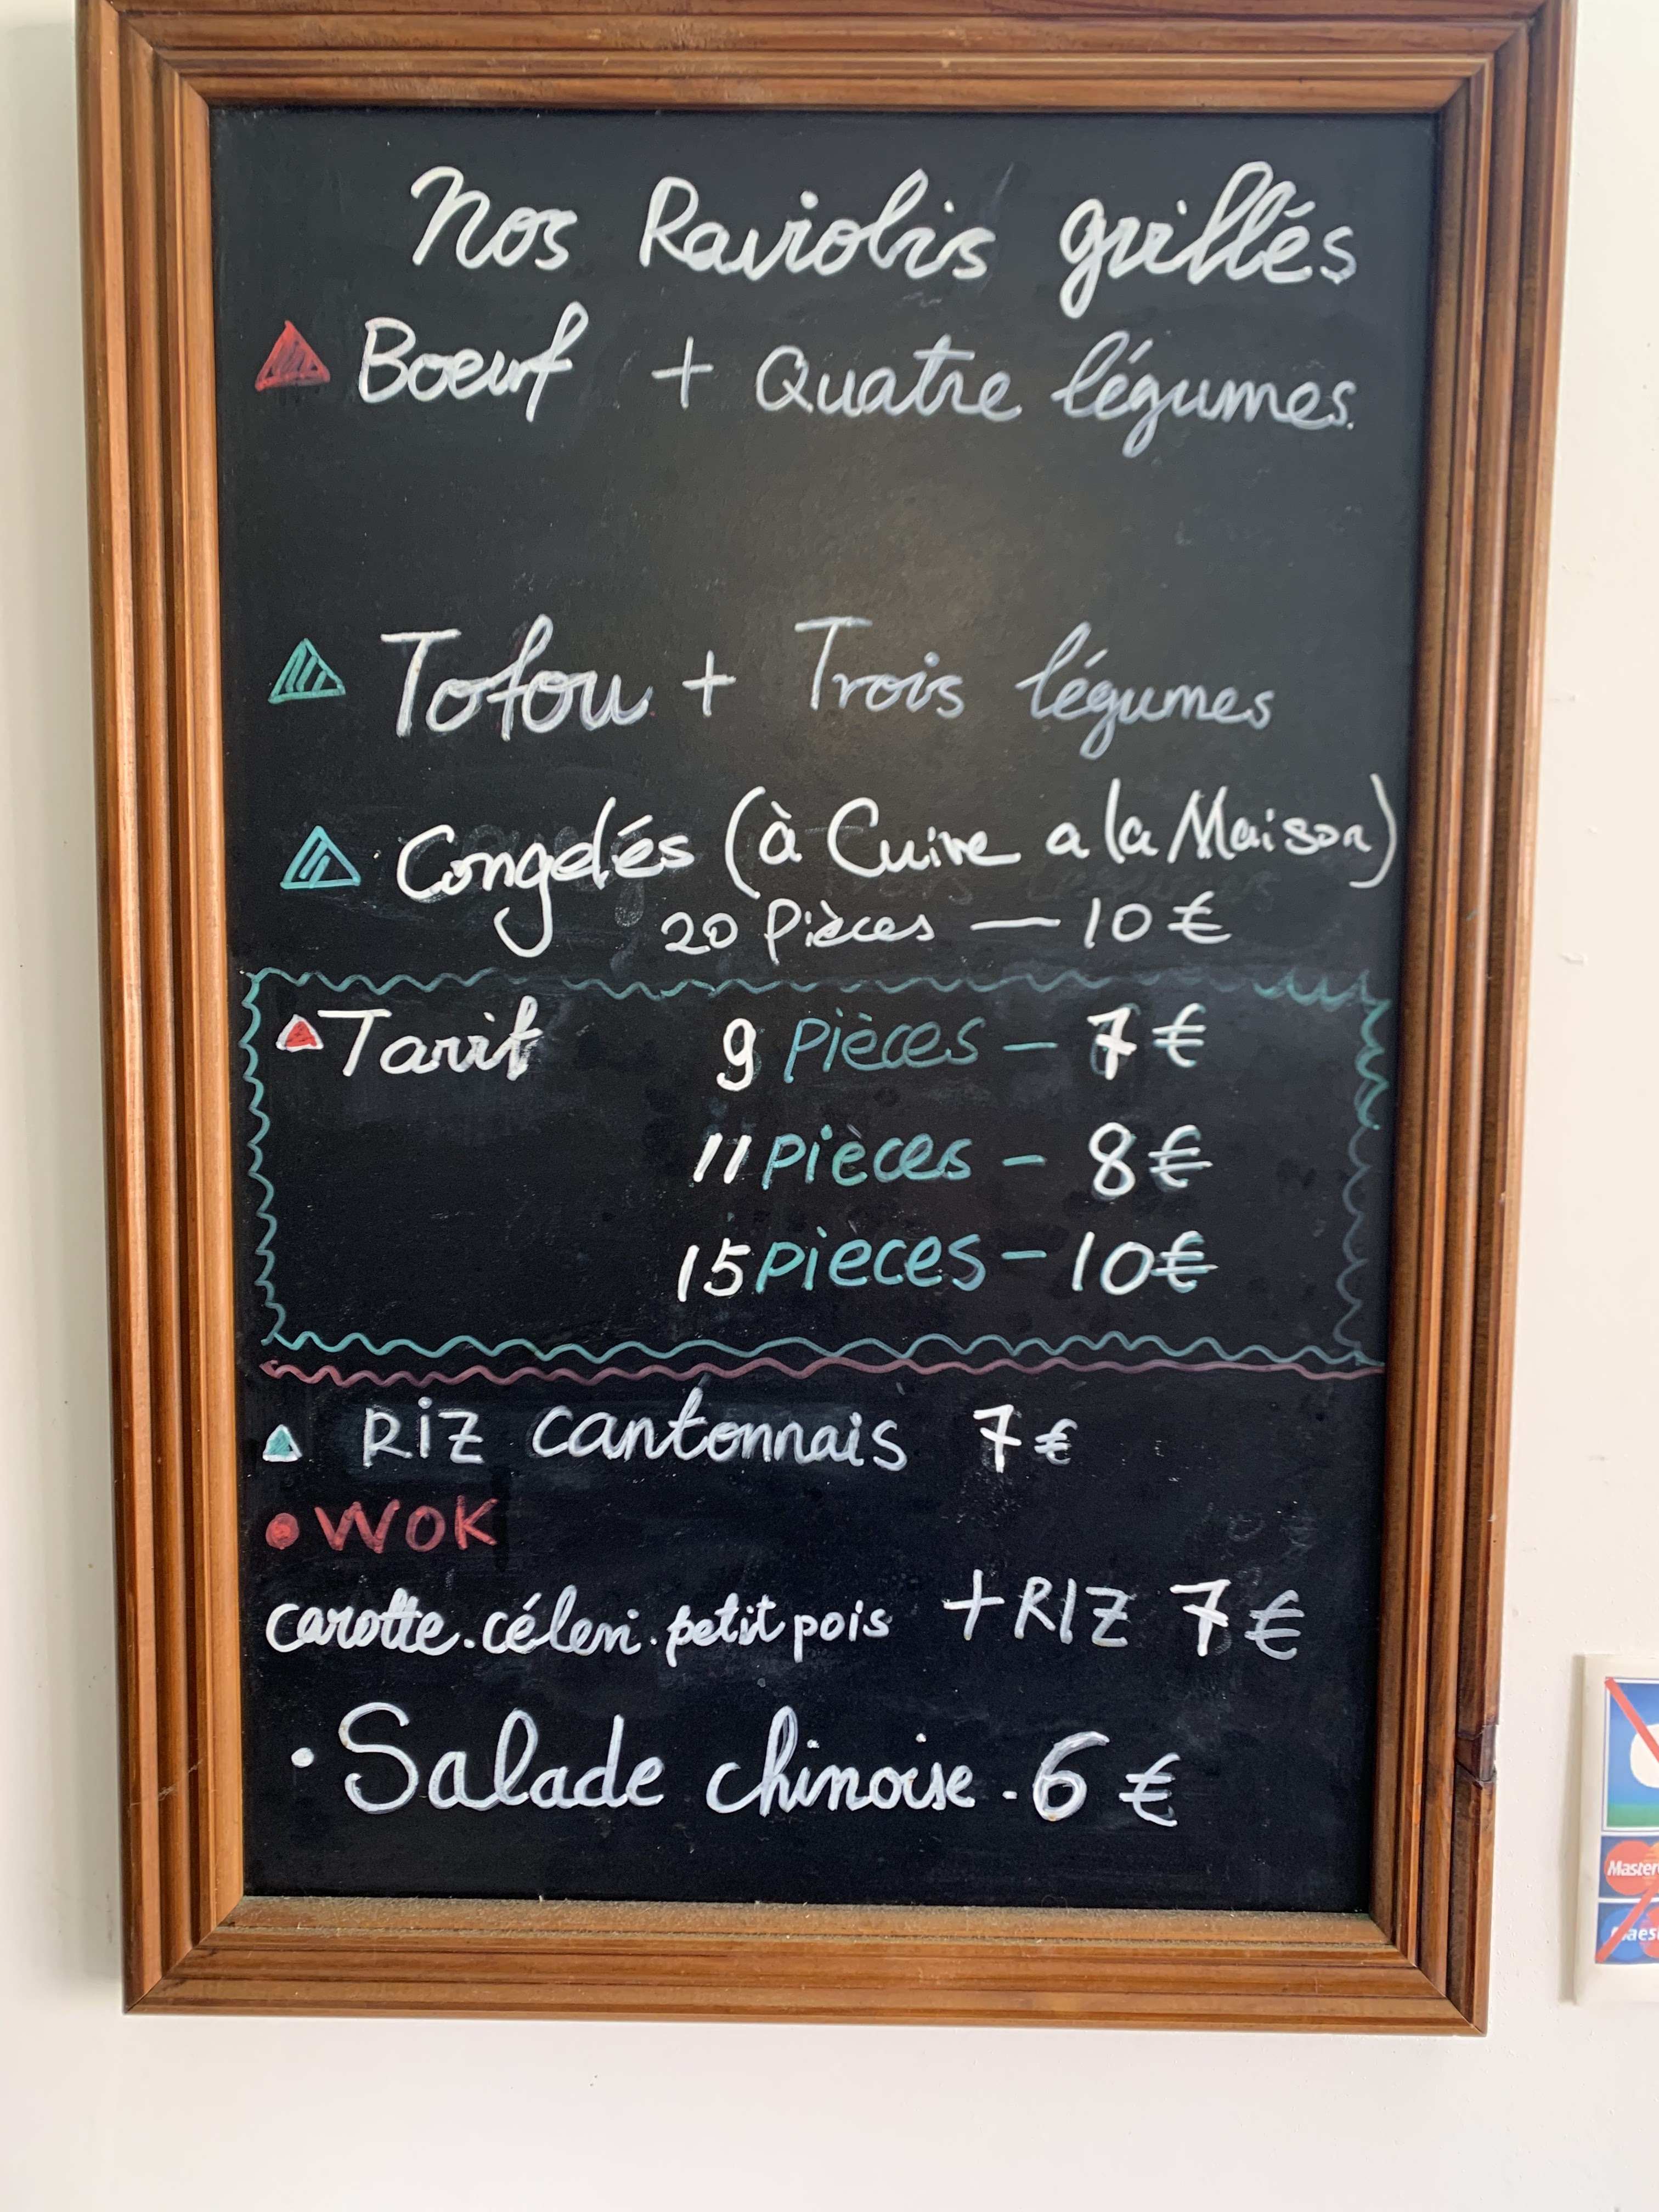 Nos Raviolis grillés
Boeuf + Quatre légumes.
Tofou + Trois légumes
Congelés (à Cuire a la Maison)
20 Pièces — 10 €
Tarif 9 pièces - 7 €
11 pièces - 8 €
15 pieces - 10 €
RIZ cantonnais 7 €
WOK
carotte. céleri. petit pois + RIZ 7 €
Salade chinoise. 6 €
Master